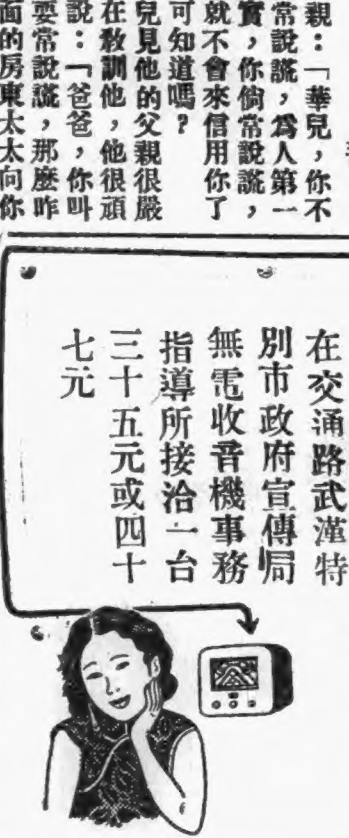 親：「華兒，你不
常說謊，爲人第一
實，你倘常說謊，
就不會來信用你了
可知道嗎？
兒見他的父親很嚴
在教訓他，他很頑
說：「爸爸，你叫
要常說謊，那麼昨
面的房東太太向你
在交通路武漢特
別市政府宣傳局
無電收音機事務
指導所接洽一台
三十五元或四十
七元